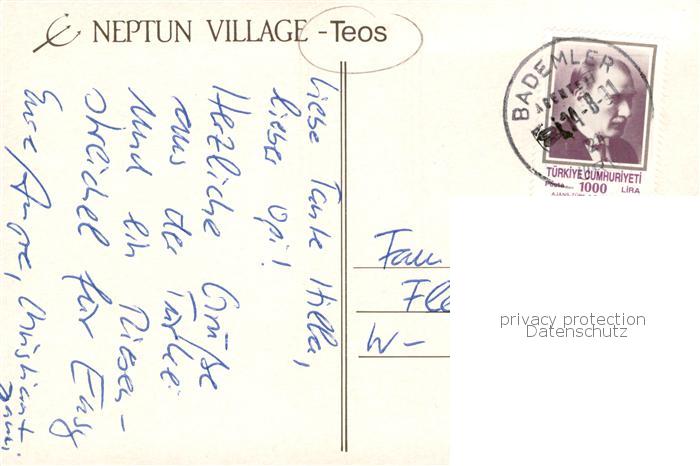 NEPTUN VILLAGE -Teos
Liebe Tante Hilla,
lieber Opi!
Herzliche Grüße
aus der Türkei
und ein Riesen-
streichel für
Eure
BADEMLER
TÜRKİYE CUMHURİYETİ
Posta 1000 LİRA
Fle
W-
privacy protection
Datenschutz